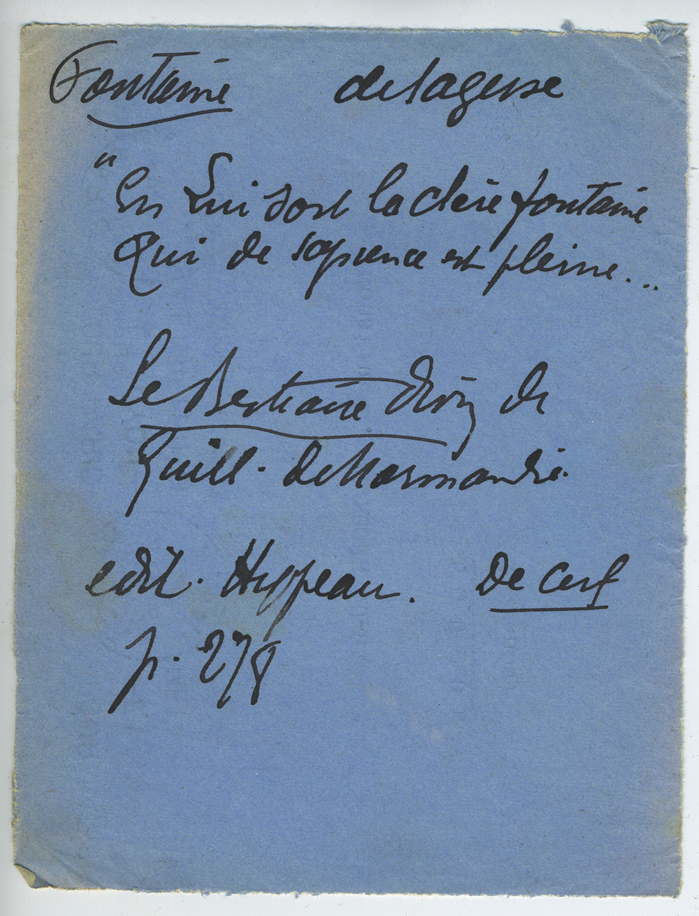 Fontaine de sagesse
"En Lui sort la clere fontaine
Qui de sapience est pleine...
Le Bestiaire divin de
Guill. de Normandie.
edit. Hippeau. De cerf
p. 278